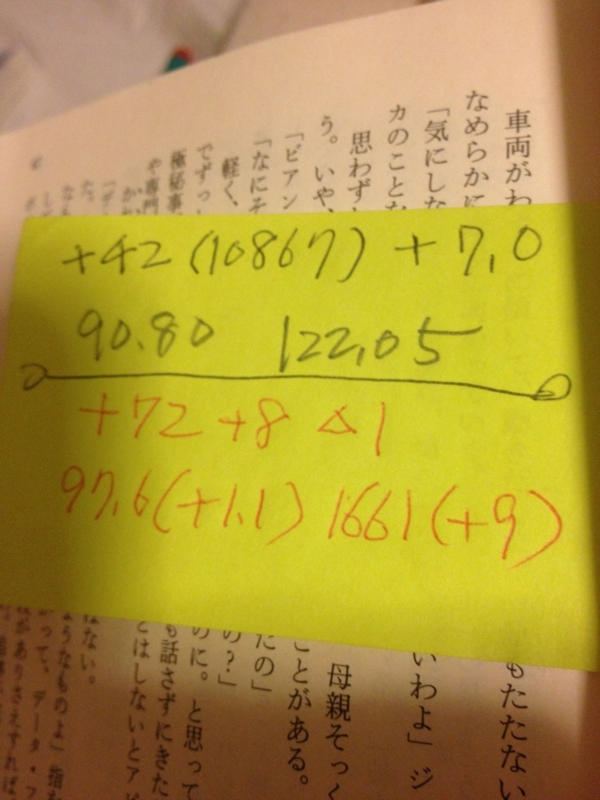 +42 (10867) + 7,0
90.80 122,05
+72 +8 △1
97,6 (+1,1) 1661 (+9)
車両がわ
なめらかに
「気にしな
カのことな
思わず
う。いや、
「ビアン
「なにそ
軽く、
でずっ
極秘事
や専門
か
た。
なも
もたたない
いわよ」ジ
母親そっく
ことがある。
たの」
の?」
のに。と思って
も話さずにきた
とはしないとア
はない。
ようなものよ」指
って、データ・フ
がありさえすれば、